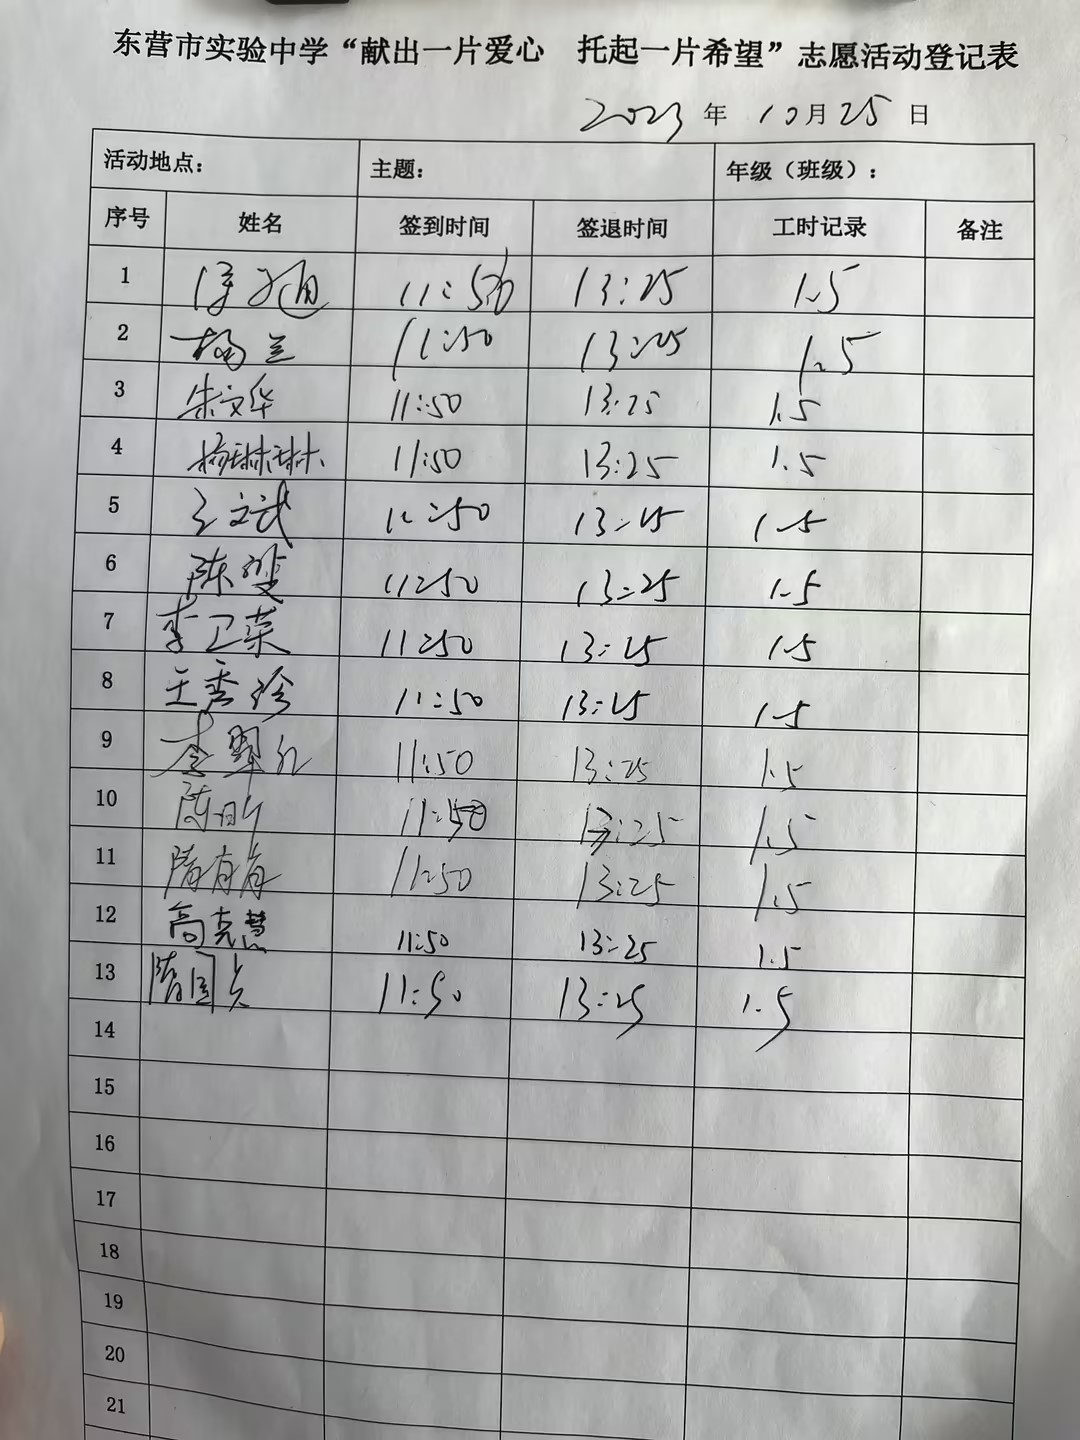 东营市实验中学“献出一片爱心 托起一片希望”志愿活动登记表
2023年10月25日
活动地点： 主题： 年级（班级）：
序号 姓名 签到时间 签退时间 工时记录 备注
1 11:50 13:25 1.5
2 杨兰 11:50 13:25 1.5
3 朱文华 11:50 13:25 1.5
4 杨琳琳 11:50 13:25 1.5
5 王文武 11:50 13:25 1.5
6 陈雯 11:50 13:25 1.5
7 李卫荣 11:50 13:25 1.5
8 王秀珍 11:50 13:25 1.5
9 李翠红 11:50 13:25 1.5
10 11:50 13:25 1.5
11 隋有有 11:50 13:25 1.5
12 高克慧 11:50 13:25 1.5
13 隋国兵 11:50 13:25 1.5
14
15
16
17
18
19
20
21